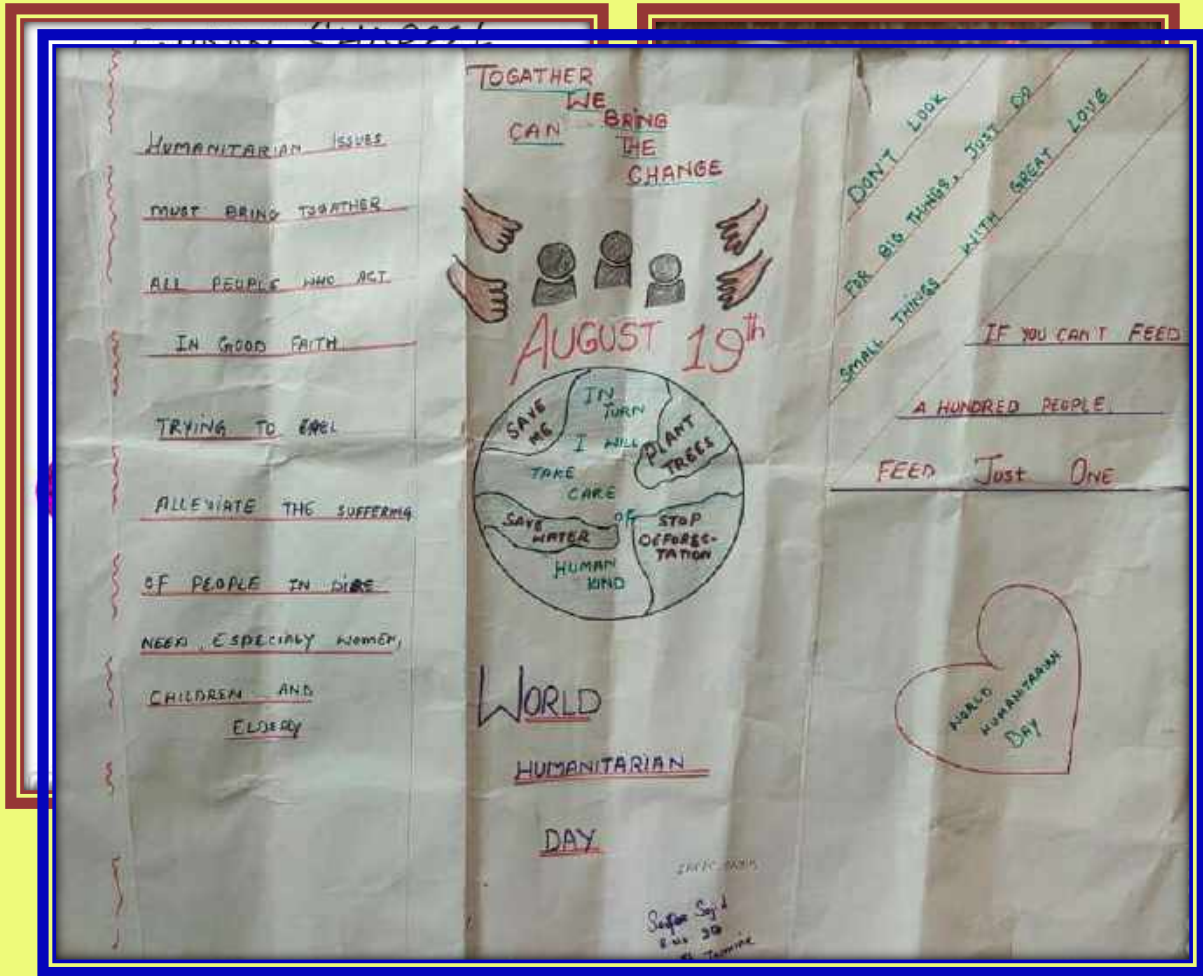 HUMANITARIAN ISSUES
MUST BRING TOGATHER
ALL PEOPLE WHO ACT
IN GOOD FAITH
TRYING TO
ALLEVIATE THE SUFFERING
OF PEOPLE IN DIRE
NEED, ESPECIALY WOMEN,
CHILDREN AND
ELDERLY
TOGATHER
WE
CAN BRING
THE
CHANGE
AUGUST 19th
SAVE
ME
IN
TURN
I WILL
TAKE
CARE
OF
HUMAN
KIND
PLANT
TREES
SAVE
WATER
STOP
DEFORES-
TATION
WORLD
HUMANITARIAN
DAY
DON'T LOOK
FOR BIG THINGS, JUST DO
SMALL THINGS WITH GREAT LOVE
IF YOU CAN'T FEED
A HUNDRED PEOPLE,
FEED JUST ONE
WORLD
HUMANITARIAN
DAY